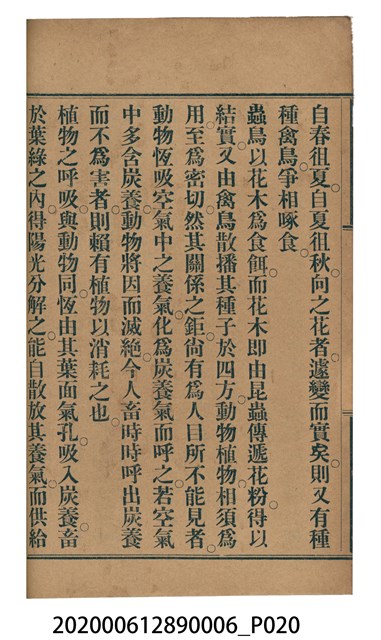 自春徂夏。自夏徂秋。向之花者。遽變而實矣。則又有種
種禽鳥爭相啄食。
蟲鳥以花木爲食餌。而花木卽由昆蟲傳遞花粉。得以
結實。又由禽鳥散播其種子於四方。動物植物。相須爲
用。至爲密切。然其關係之鉅。尙有爲人目所不能見者。
動物恆吸空氣中之養氣。化爲炭養氣而呼之。若空氣
中多含炭養。動物將因而滅絕。今人畜時時呼出炭養
而不爲害者。則賴有植物以消耗之也。
植物之呼吸。與動物同。恆由其葉面氣孔。吸入炭養。畜
於葉綠之內。得陽光分解之。能自散放其養氣。而供給
202000612890006_P020